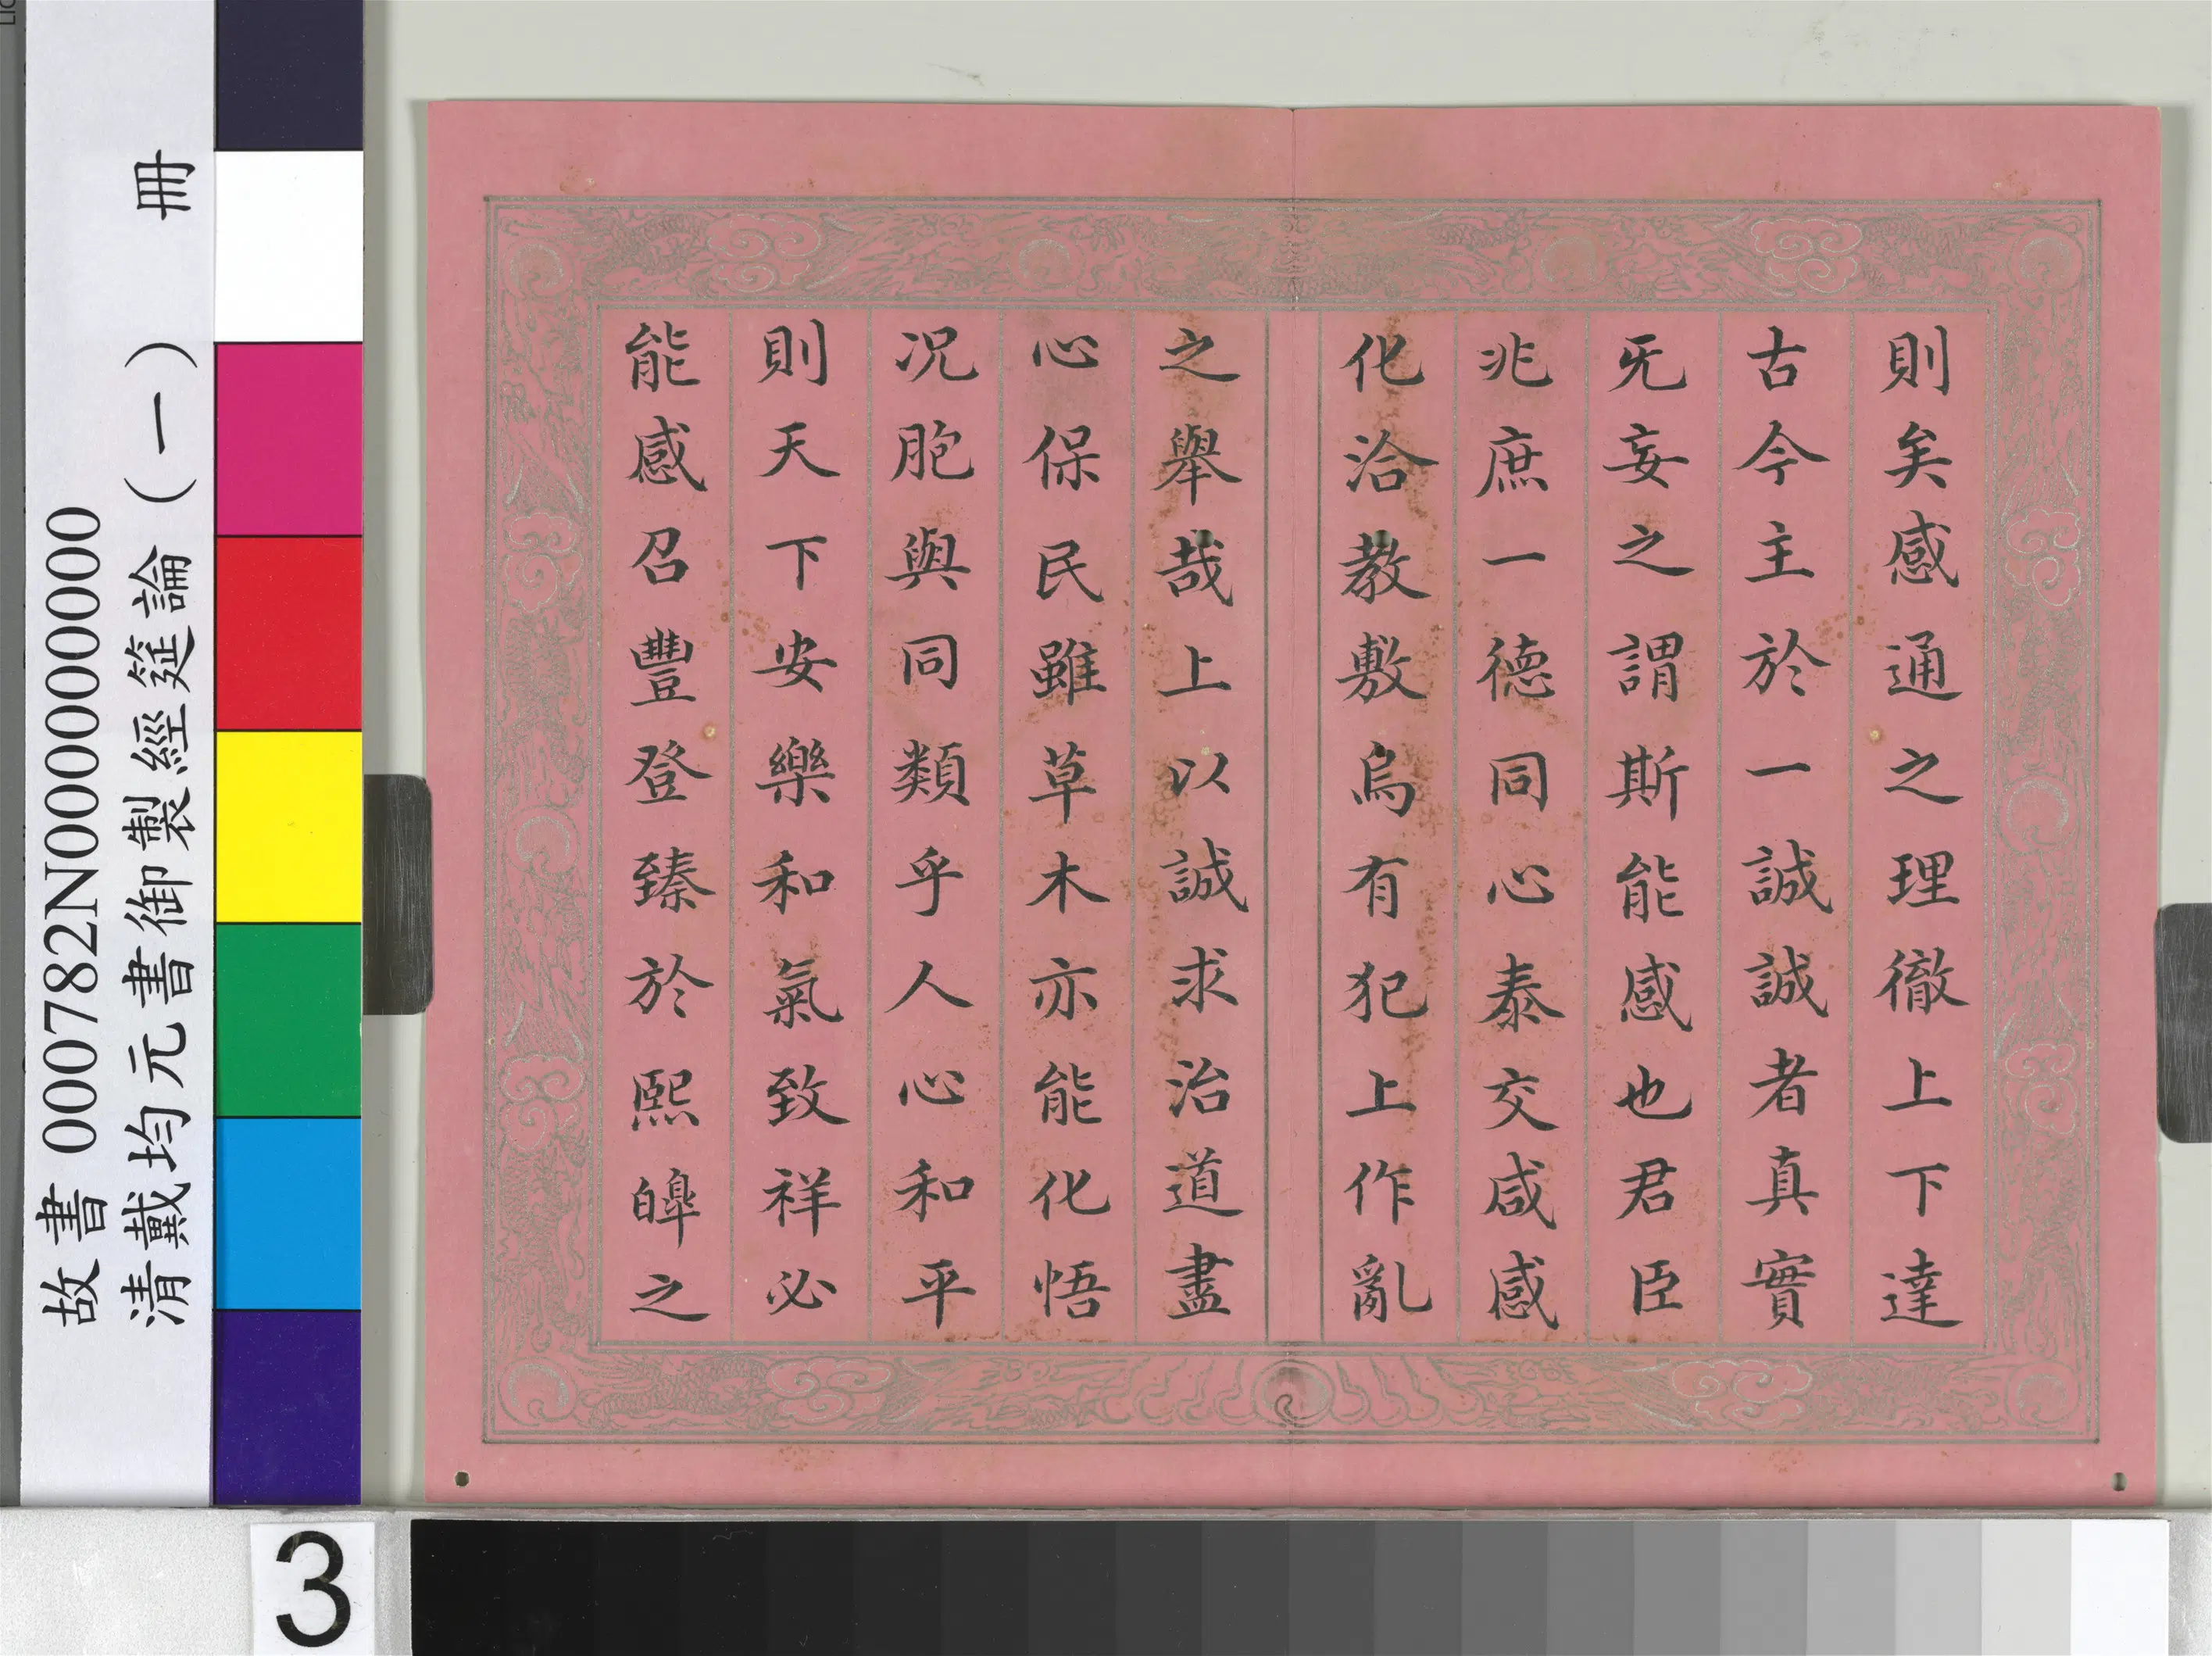 則矣感通之理徹上下達
古今主於一誠誠者真實
无妄之謂斯能感也君臣
兆庶一德同心泰交咸感
化洽教敷烏有犯上作亂
之舉哉上以誠求治道盡
心保民雖草木亦能化悟
况胞與同類乎人心和平
則天下安樂和氣致祥必
能感召豐登臻於熙皞之
故書 000782N000000000
清戴均元書御製經筵論（一） 冊
3